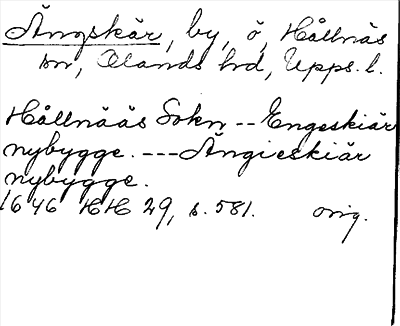 Ängskär, by, ö, Hållnäs
sn, Olands hd, Upps. l.
Hållnääs Sokn -- Engeskiär
nybygge. --- Ängieskiär
nybygge.
1646 HH 29, s. 581. orig.